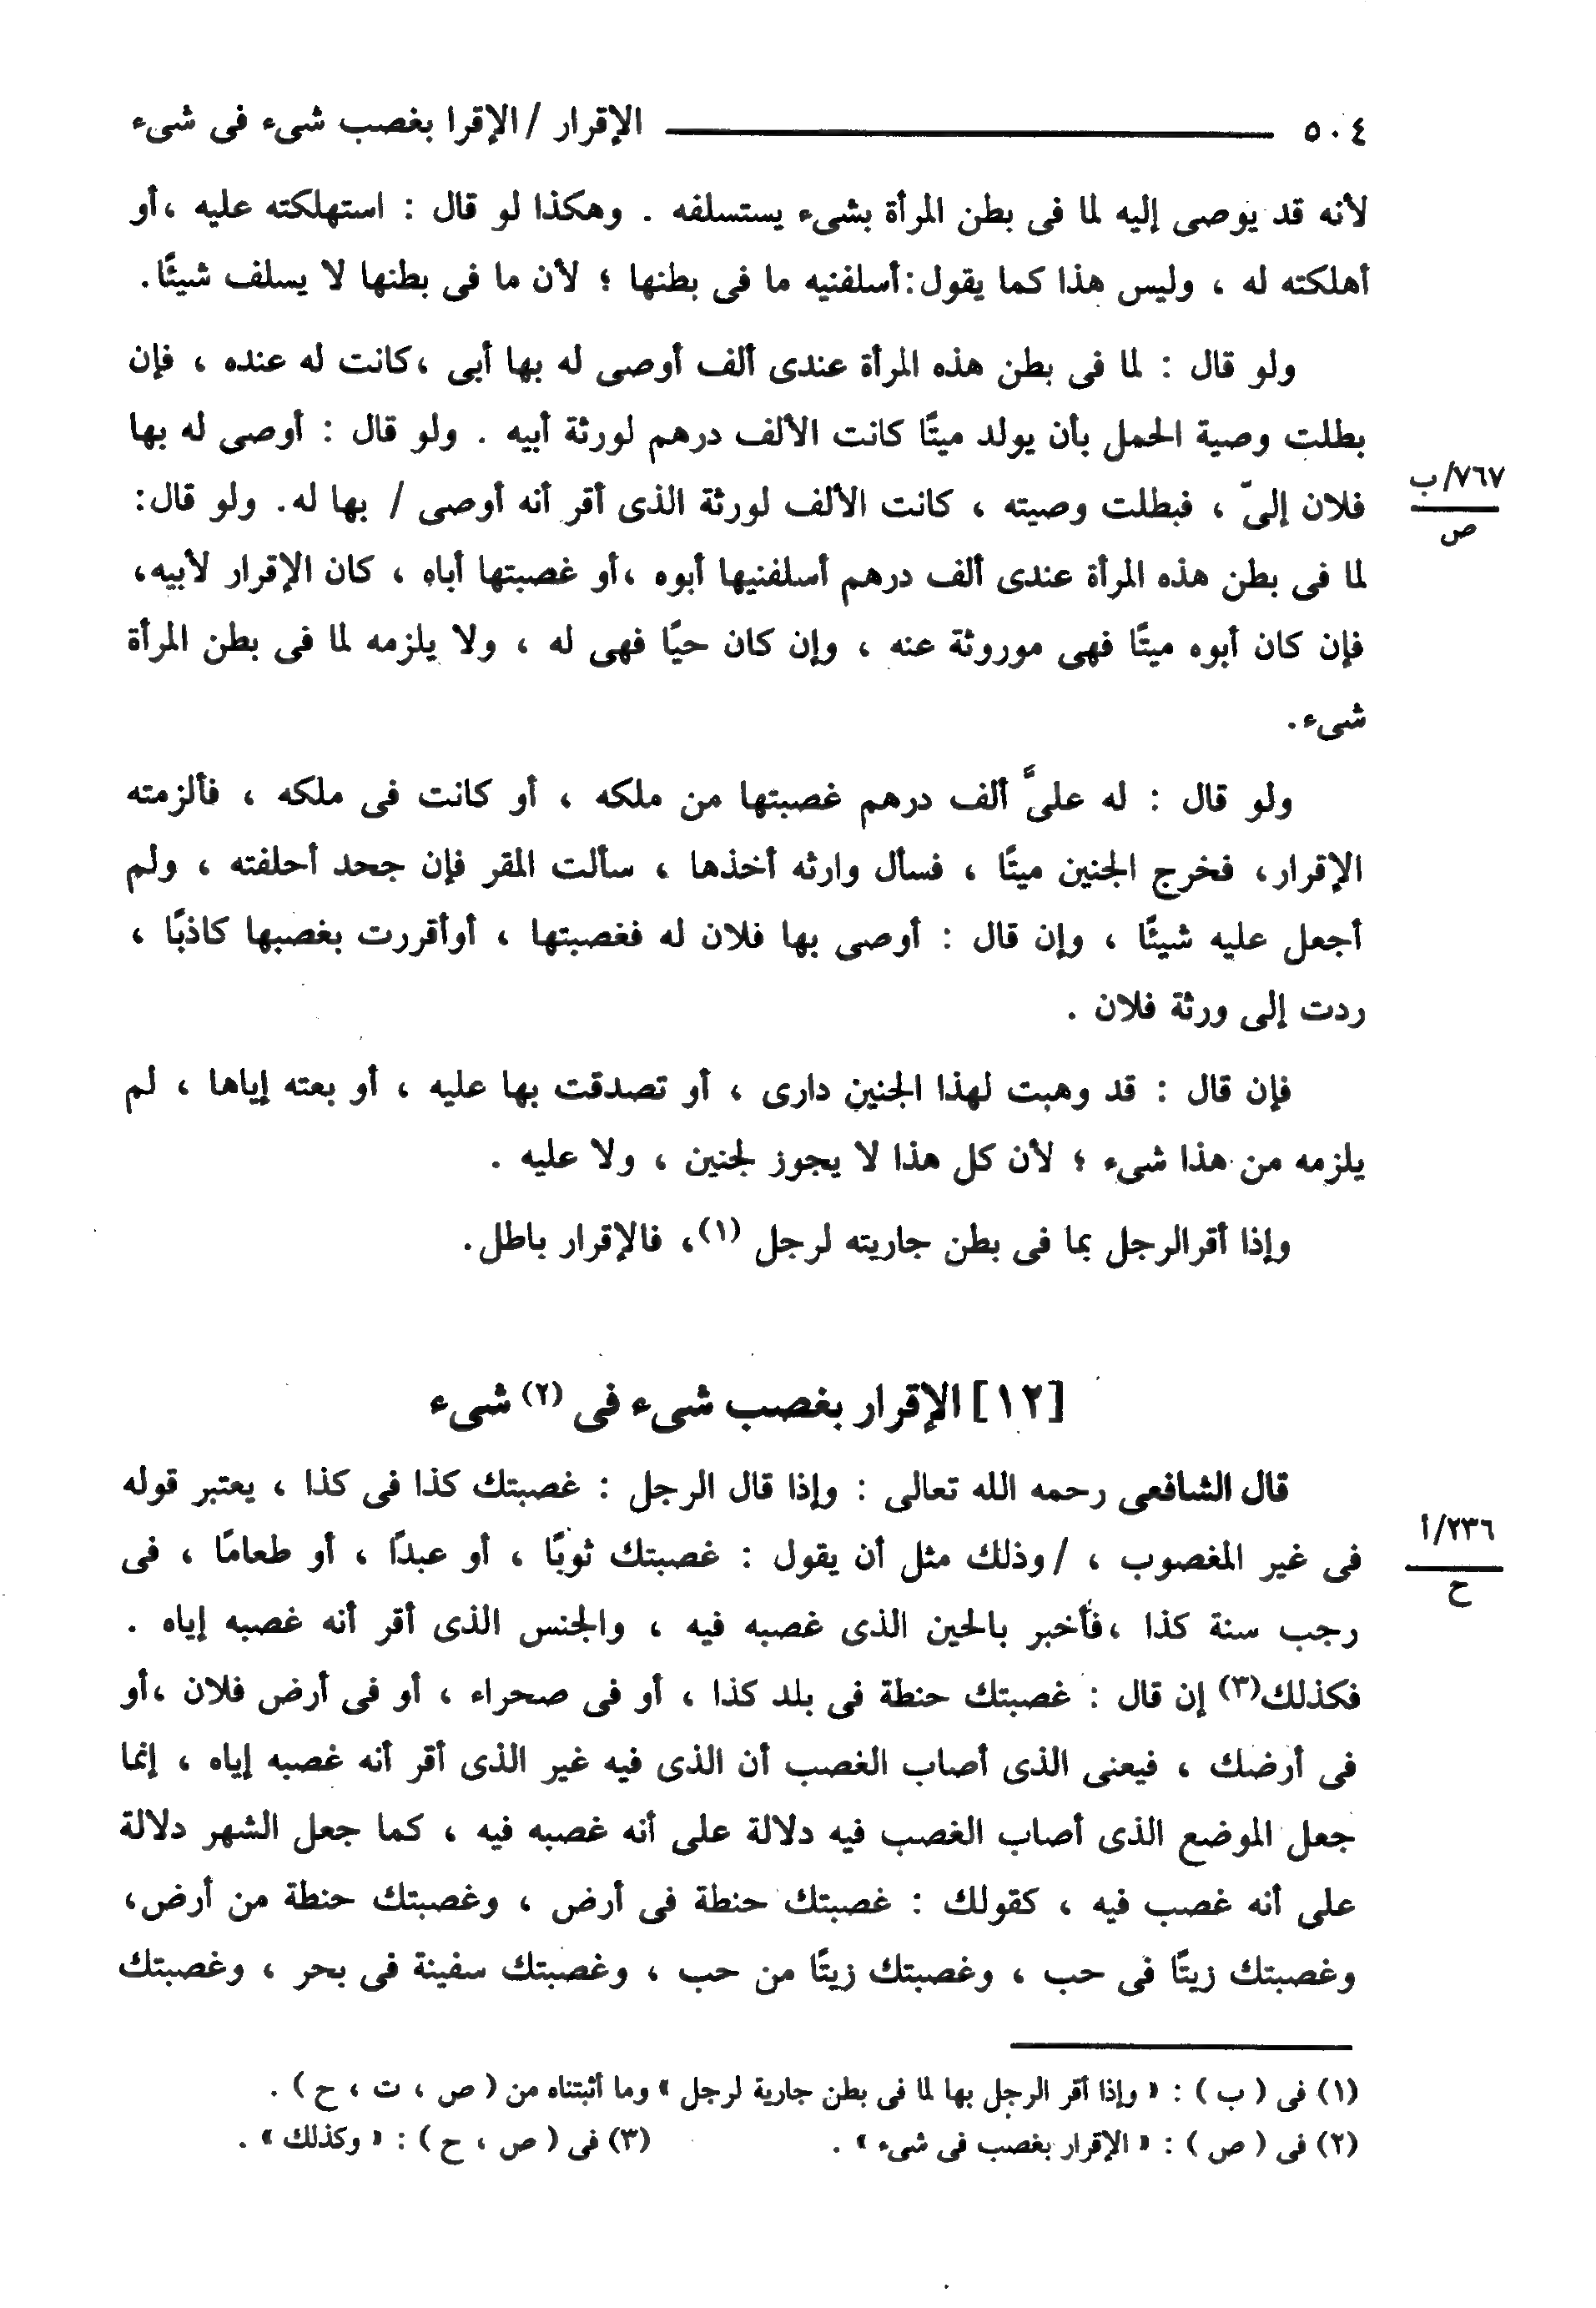 ٥٠٤ الإقرار / الإقرا بغصب شىء فى شىء
لأنه قد يوصى إليه لما فى بطن المرأة بشىء يستسلفه . وهكذا لو قال : استهلكته عليه ، أو
أهلكته له ، وليس هذا كما يقول : أسلفنيه ما فى بطنها ؛ لأن ما فى بطنها لا يسلف شيئًا .
ولو قال : لما فى بطن هذه المرأة عندى ألف أوصى له بها أبى ، كانت له عنده ، فإن
بطلت وصية الحمل بأن يولد ميتًا كانت الألف درهم لورثة أبيه . ولو قال : أوصى له بها
فلان إلىّ ، فبطلت وصيته ، كانت الألف لورثة الذى أقر أنه أوصى / بها له . ولو قال :
٧٦٧/ب
ص
لما فى بطن هذه المرأة عندى ألف درهم أسلفنيها أبوه ، أو غصبتها أباه ، كان الإقرار لأبيه ،
فإن كان أبوه ميتًا فهى موروثة عنه ، وإن كان حيًا فهى له ، ولا يلزمه لما فى بطن المرأة
شىء .
ولو قال : له علىَّ ألف درهم غصبتها من ملكه ، أو كانت فى ملكه ، فألزمته
الإقرار ، فخرج الجنين ميتًا ، فسأل وارثه أخذها ، سألت المقر فإن جحد أحلفته ، ولم
أجعل عليه شيئًا ، وإن قال : أوصى بها فلان له فغصبتها ، أوأقررت بغصبها كاذبًا ،
ردت إلى ورثة فلان .
فإن قال : قد وهبت لهذا الجنين دارى ، أو تصدقت بها عليه ، أو بعته إياها ، لم
يلزمه من هذا شىء ؛ لأن كل هذا لا يجوز لجنين ، ولا عليه .
وإذا أقرالرجل بما فى بطن جاريته لرجل (١) ، فالإقرار باطل .
[١٢] الإقرار بغصب شىء فى (٢) شىء
قال الشافعى رحمه الله تعالى : وإذا قال الرجل : غصبتك كذا فى كذا ، يعتبر قوله
فى غير المغصوب ، / وذلك مثل أن يقول : غصبتك ثوبًا ، أو عبدًا ، أو طعامًا ، فى
٢٣٦/أ
ح
رجب سنة كذا ، فأخبر بالحين الذى غصبه فيه ، والجنس الذى أقر أنه غصبه إياه .
فكذلك(٣) إن قال : غصبتك حنطة فى بلد كذا ، أو فى صحراء ، أو فى أرض فلان ، أو
فى أرضك ، فيعنى الذى أصاب الغصب أن الذى فيه غير الذى أقر أنه غصبه إياه ، إنما
جعل الموضع الذى أصاب الغصب فيه دلالة على أنه غصبه فيه ، كما جعل الشهر دلالة
على أنه غصب فيه ، كقولك : غصبتك حنطة فى أرض ، وغصبتك حنطة من أرض ،
وغصبتك زيتًا فى حب ، وغصبتك زيتًا من حب ، وغصبتك سفينة فى بحر ، وغصبتك
(١) فى ( ب ) : « وإذا أقر الرجل بها لما فى بطن جارية لرجل » وما أثبتناه من ( ص ، ت ، ح ) .
(٢) فى ( ص ) : « الإقرار بغصب فى شىء » . (٣) فى ( ص ، ح ) : « وكذلك » .